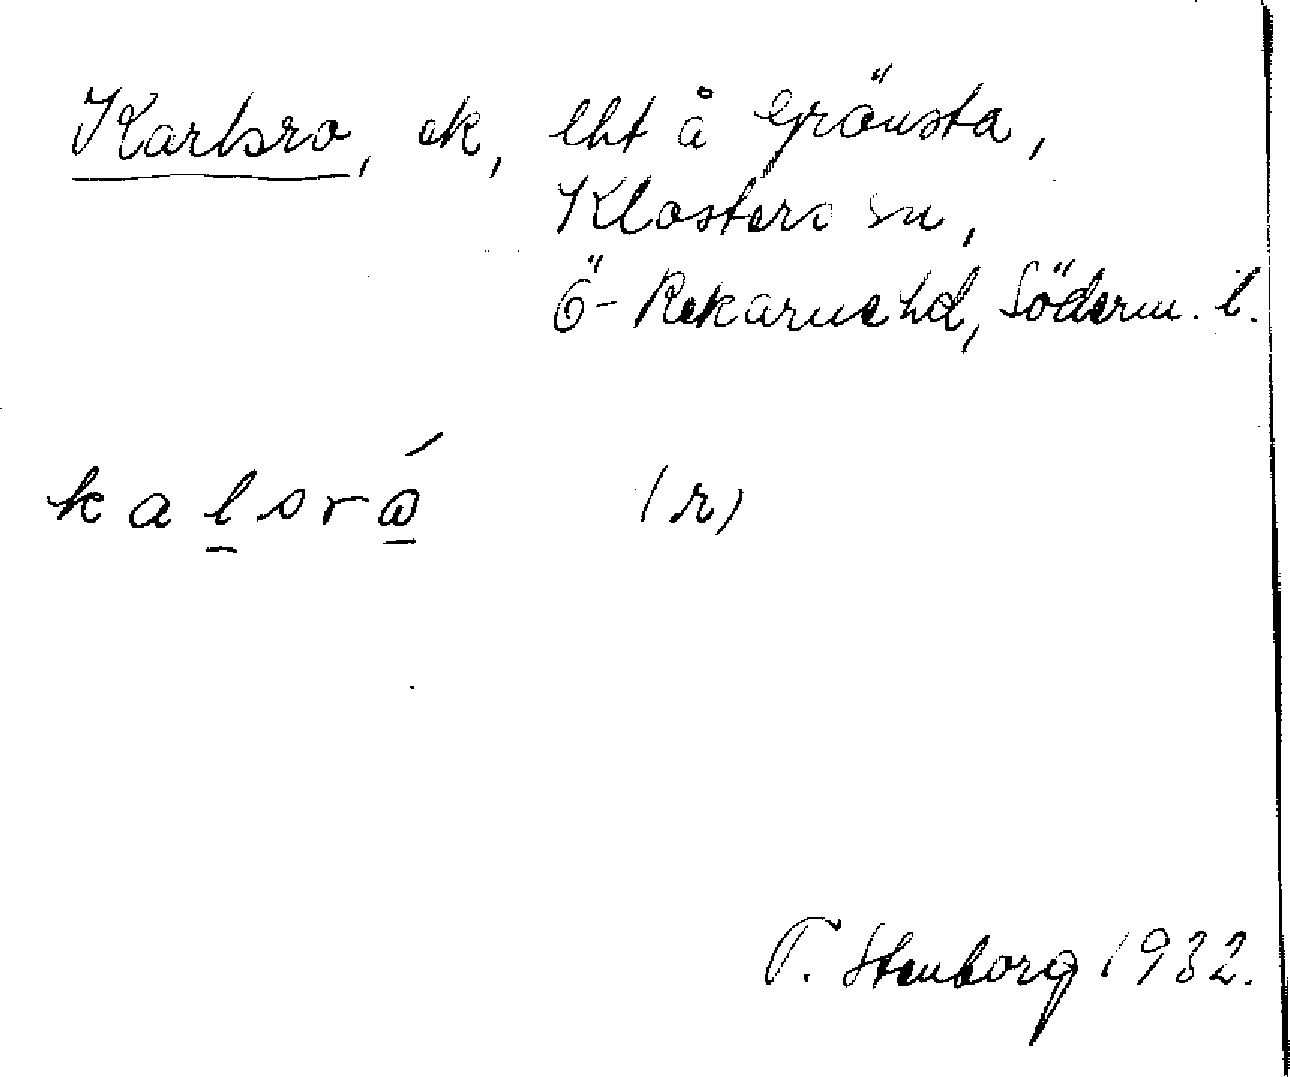 Karlsro, ek, lht å Grönsta,
Klosters sn,
Ö-Rekarne hd, Söderm. l.
kalsrá (r)
T. Stenborg 1932.